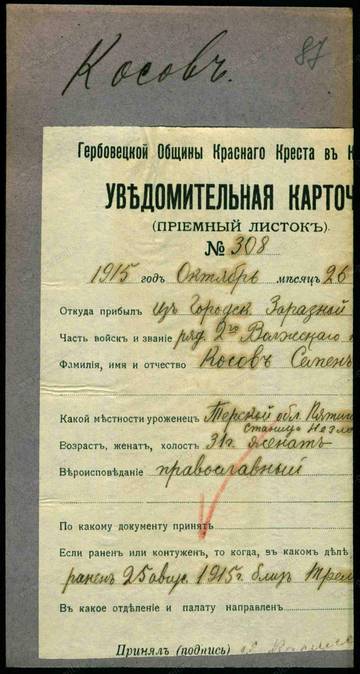 87
Косовъ.
Гербовецкой Общины Краснаго Креста въ К
УВѢДОМИТЕЛЬНАЯ КАРТОЧ
(ПРІЕМНЫЙ ЛИСТОКЪ)
№ 308
1915 годъ Октябрь мѣсяцъ 26
Откуда прибылъ изъ Городск Заразной
Часть войскъ и званіе ряд. 2го Волжскаго
Фамилія, имя и отчество Косовъ Семенъ
Какой мѣстности уроженец Терской обл. Пятиг
станица Незло
Возрастъ, женатъ, холостъ 31 г. женатъ
Вѣроисповѣданіе православный
По какому документу принятъ
Если раненъ или контуженъ, то когда, въ какомъ дѣлѣ
раненъ 25 авгус. 1915 г. близъ Трем
Въ какое отдѣленіе и палату направленъ
Принялъ (подпись)